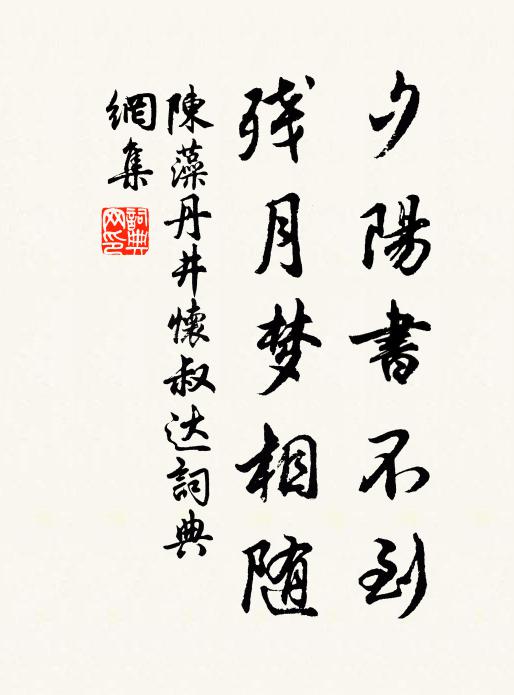 夕陽書不到
残月梦相随
陳藻丹井懷叔达詞典
網集
詞典網印